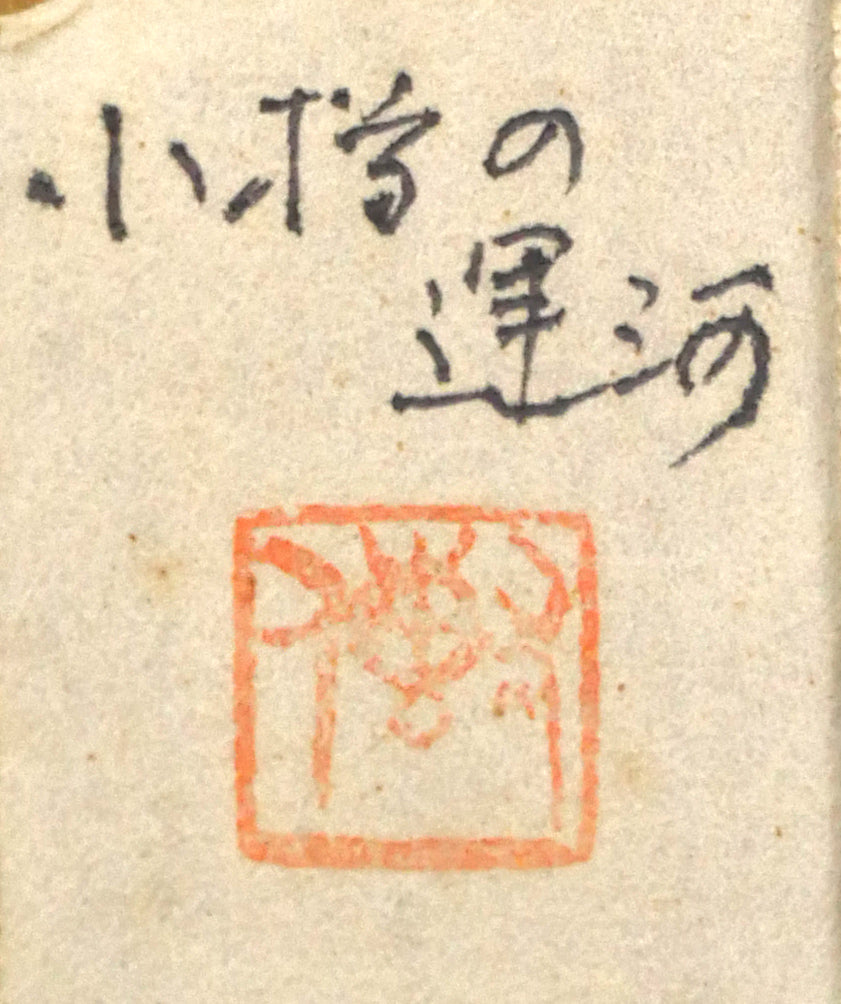 小樽の
運河